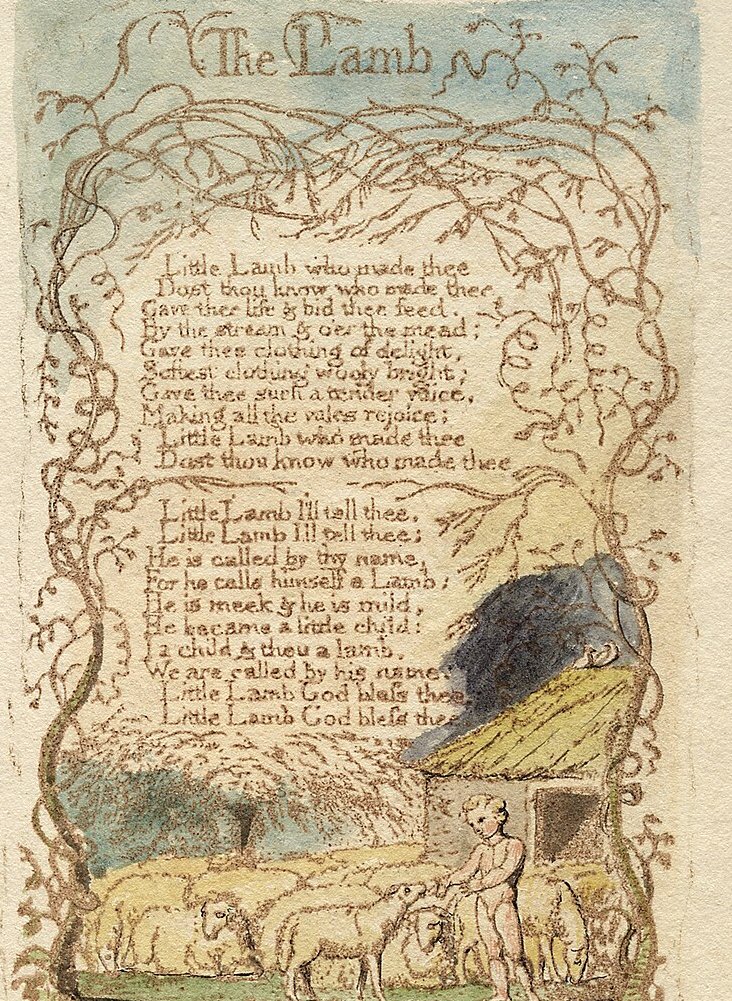 The Lamb
Little Lamb who made thee
Dost thou know who made thee
Gave thee life & bid thee feed.
By the stream & o'er the mead;
Gave thee clothing of delight,
Softest clothing wooly bright;
Gave thee such a tender voice,
Making all the vales rejoice;
Little Lamb who made thee
Dost thou know who made thee
Little Lamb I'll tell thee,
Little Lamb I'll tell thee;
He is called by thy name,
For he calls himself a Lamb:
He is meek & he is mild,
He became a little child:
I a child & thou a lamb,
We are called by his name.
Little Lamb God bleſs thee.
Little Lamb God bleſs thee.